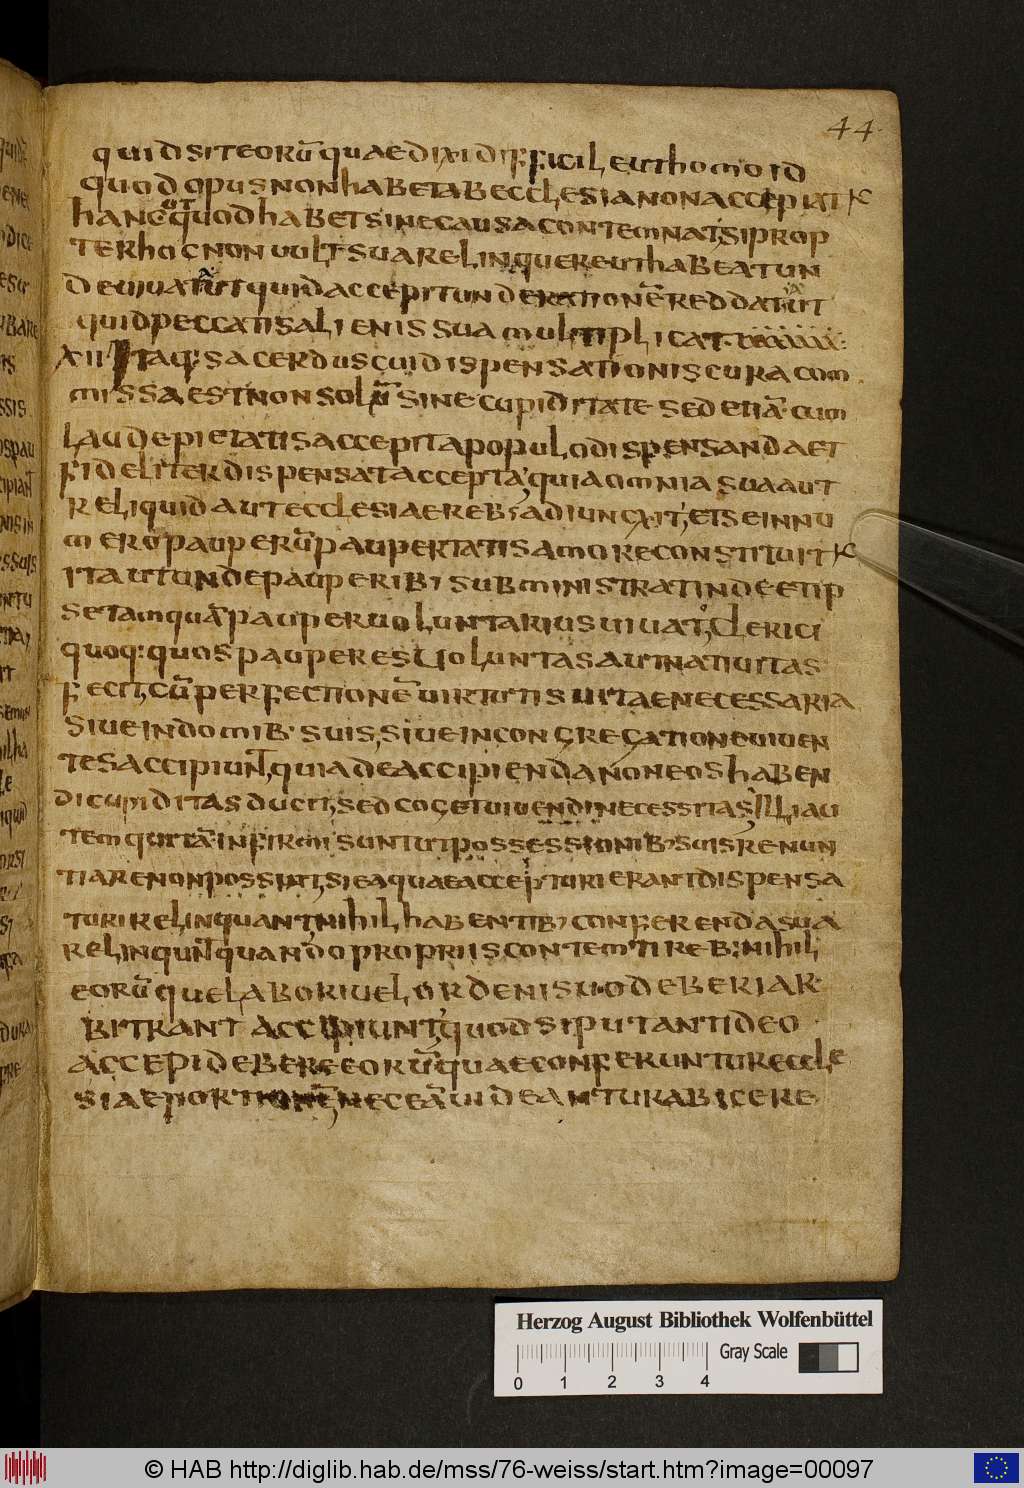 44
quid siteorū quae dixi difficile ut homo id
quod opus non habet ab ecclesia non accipiat
hanc quod habet sine causa contemnat, si prop
ter hoc non uult sua relinquere ut habeat un
de uiuat ut quid accepit unde rationē reddat ut
quid peccatis alienis sua multiplicat.
XII Itaq: sacerdus cui dispensationis cura com
missa est non solū sine cupiditate sed etiā cum
laude pietatis accepit a populo dispensanda et
fideliter dispensat accepta, qui a omnia sua aut
reliquid aut ecclesiae reb; adiuncxit, et se in nu
merō pauperū paupertatis amore constituit
ita ut unde pauperib; subministrat inde et ip
se tamquā pauper uoluntarius uiuat, Clerici
quoq: quos pauperes Uoluntas aut natiuitas
fecit, cū perfectionē uirtutis uitae necessaria
siue in domib' suis, siue in congregatione uiuen
tes accipiunt, quia de accipienda non eos haben
di cupiditas ducit, sed cogetuiuendi necessitas, Illi au
tem qui tā infirmi sunt ut possessionib; suis renun
tiare non possint, si ea quae accepturi erant dispensa
turi relinquant nihil habentib; conferenda sua
relinqunt quando propriis contemti reb: nihil
eorū que laboriuel ordeni suo deberi ar
bitrant accipiunt, quod si putant ideo
accepi debere eorū quae conferuntur eccle
siae portionē, nec eā uideantur abicere
Herzog August Bibliothek Wolfenbüttel
Gray Scale
0 1 2 3 4
© HAB http://diglib.hab.de/mss/76-weiss/start.htm?image=00097